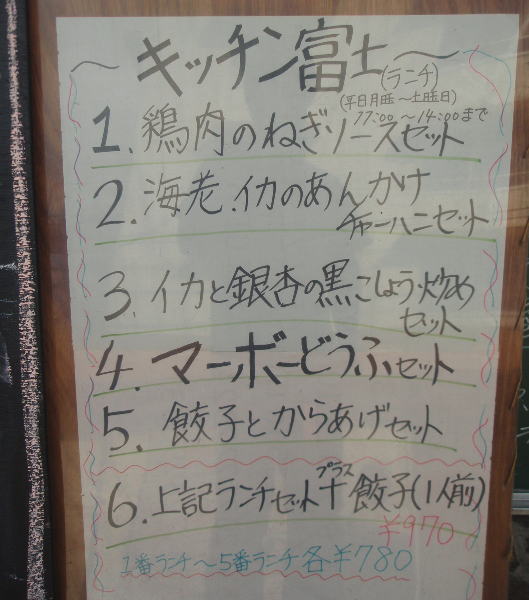 ～キッチン富士～
(ランチ)
(平日月曜～土曜日)
11:00～14:00まで
1.鶏肉のねぎソースセット
2.海老.イカのあんかけ
チャーハンセット
3.イカと銀杏の黒こしょう炒め
セット
4.マーボーどうふセット
5.餃子とからあげセット
6.上記ランチセット+プラス餃子(1人前)
¥970
1番ランチ～5番ランチ各¥780